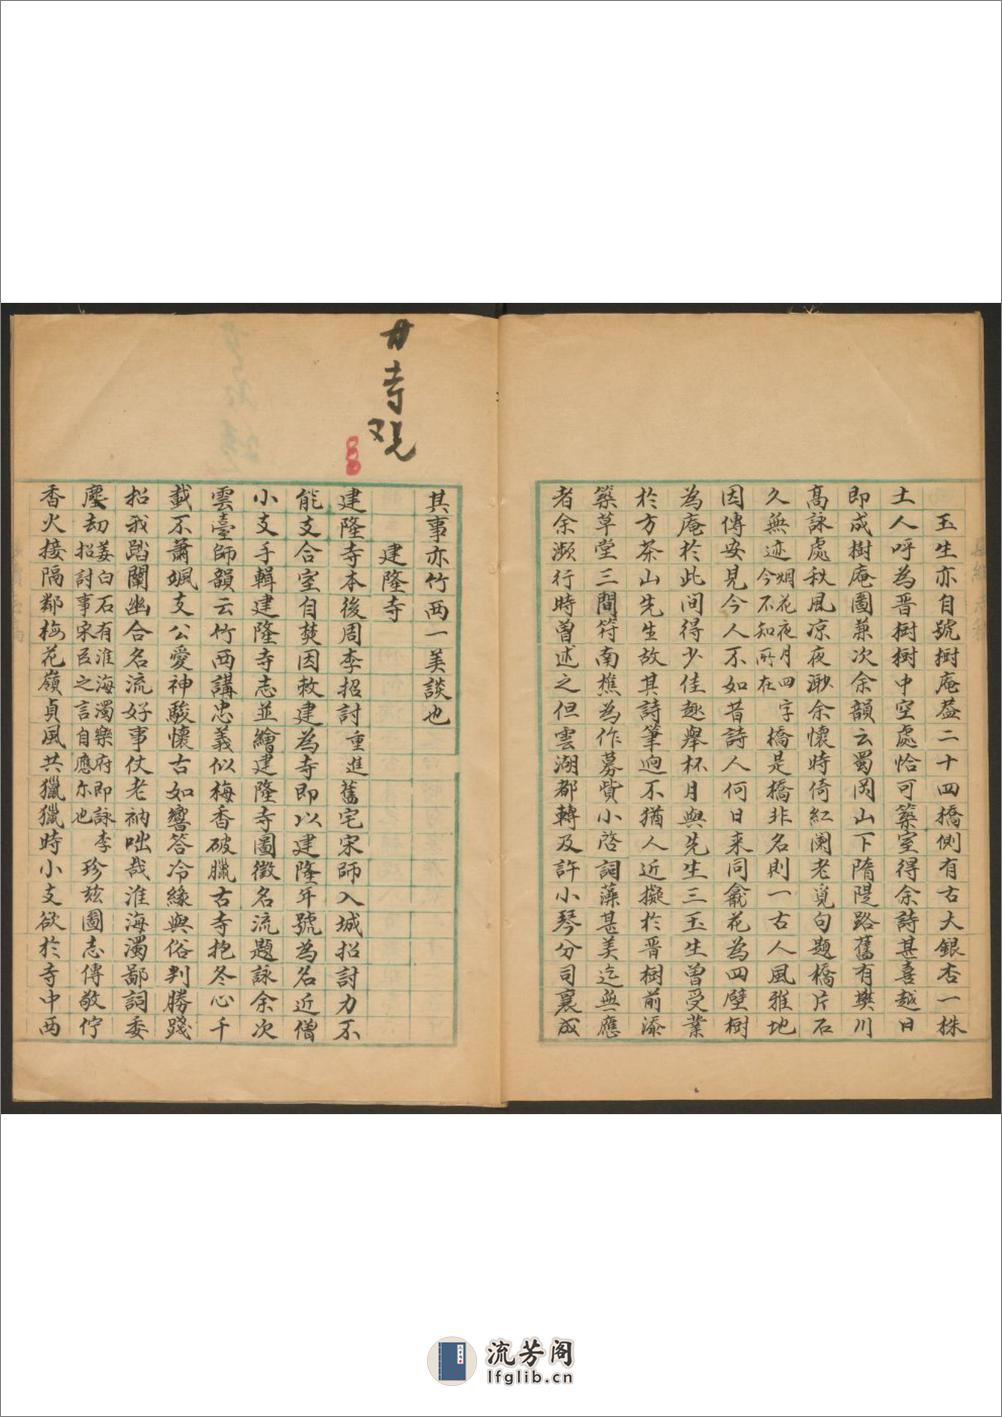 玉生亦自號樹庵葢二十四橋側有古大銀杏一株
土人呼為晋樹樹中空處恰可築室得余詩甚喜越日
即成樹庵圖兼次余韻云蜀岡山下隋隄路舊有樊川
高詠處秋風凉夜渺余懷時倚紅闌老覓句題橋片石
久無迹今不知所在烟花夜月四字橋是橋非名則一古人風雅地
因傳安見今人不如昔詩人何日来同龕花為四壁樹
為庵於此间得少佳趣舉杯月與先生三玉生曾受業
於方茶山先生故其詩筆迥不猶人近擬於晋樹前添
築草堂三間符南樵為作募貲小啓詞藻甚美迄無應
者余瀕行時曽述之但雲湖都轉及許小琴分司襄成
其事亦竹西一美談也
建隆寺
建隆寺本後周李招討重進舊宅宋師入城招討力不
能支合室自焚因敕建為寺即以建隆年號為名近僧
小支手輯建隆寺志並繪建隆寺圖徵名流題詠余次
雲臺師韻云竹西講忠義似梅香破臘古寺抱冬心千
載不蕭颯支公愛神駿懷古如響答冷緣與俗判勝踐
招我踏闡幽合名流好事仗老衲咄哉淮海濁鄙詞委
塵劫姜白石有淮海濁樂府即詠李招討事宋臣之言自應尔也珍兹圖志傳敬佇
香火接隔鄰梅花嶺貞風共獵獵時小支欲於寺中西
廿寺观
流芳阁
lfglib.cn